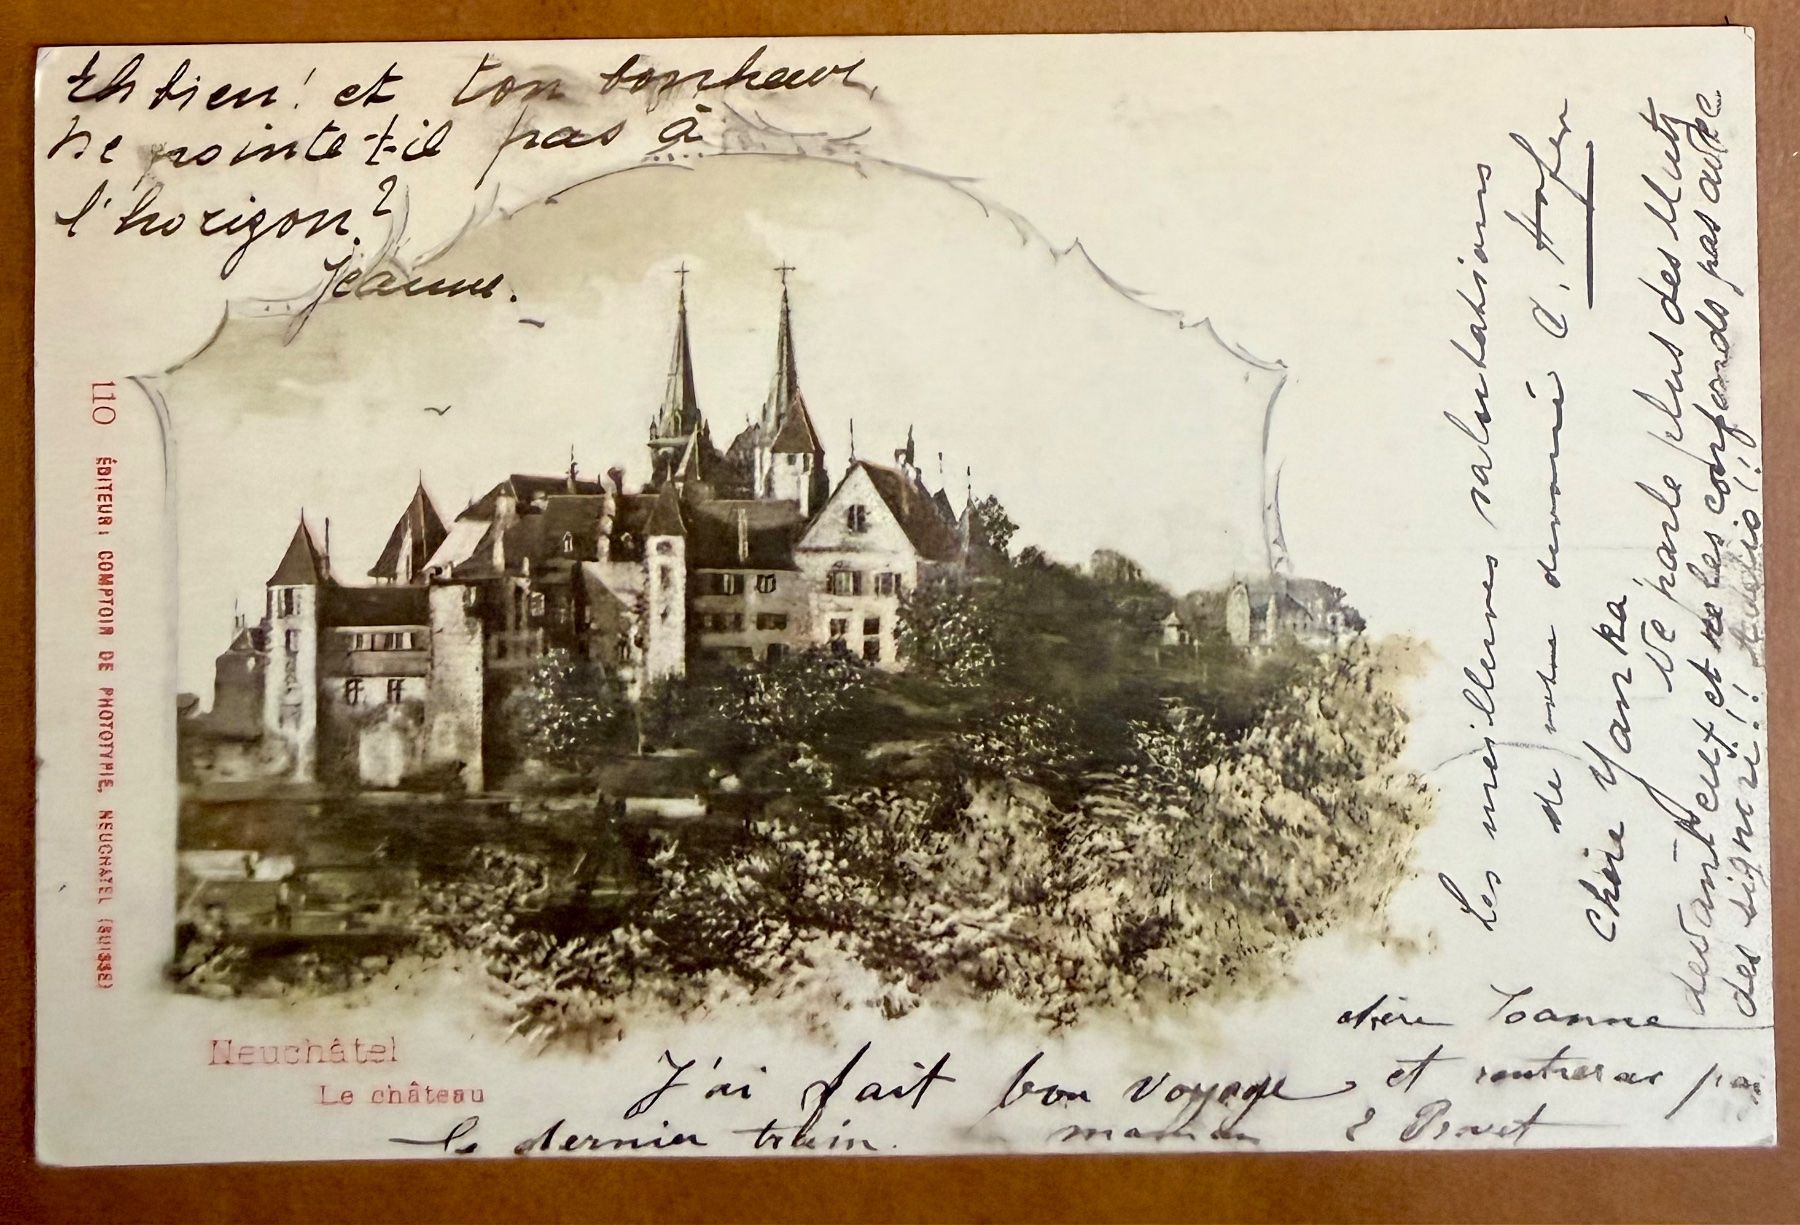 Eh bien! et ton bonheur,
ne pointe-t-il pas à
l'horizon?
Jeanne.
110 ÉDITEUR: COMPTOIR DE PHOTOTYPIE, NEUCHATEL (SUISSE)
Neuchâtel
Le château
Les meilleures salutations
de votre C. Hofer
Chère Yanka
ne parle plus des Mutz
devant eux, et ne les confonds pas avec
des signori!!
chère Joanne
J'ai fait bon voyage et rentrerai par
le dernier train. maman